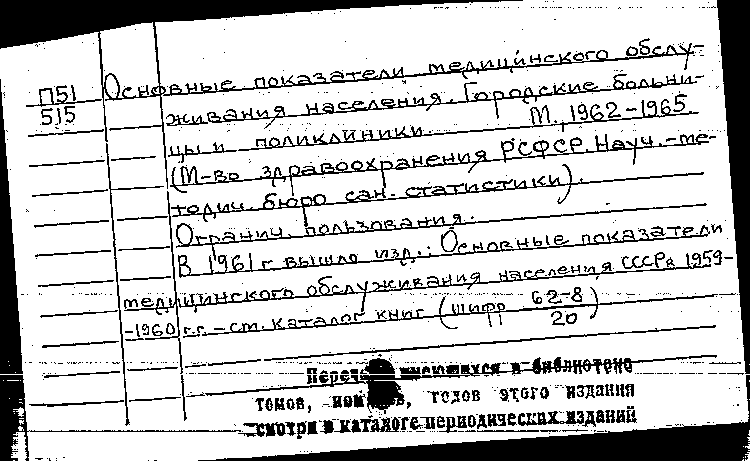 П51 Основные показатели медицинского обслу-
515 живания населения. Городские больни-
цы и поликлиники. М., 1962-1965.
(М-во здравоохранения РСФСР. Науч.-ме-
тодич. бюро сан. статистики).
Огранич. пользования.
В 1961 г. вышло изд.: Основные показатели
медицинского обслуживания населения СССР в 1959-
-1960 г.г. - см. каталог книг (шифр 62-8
П 20)
Перечень имеющихся в библиотеке
томов, номеров, годов этого издания
смотри в каталоге периодических изданий